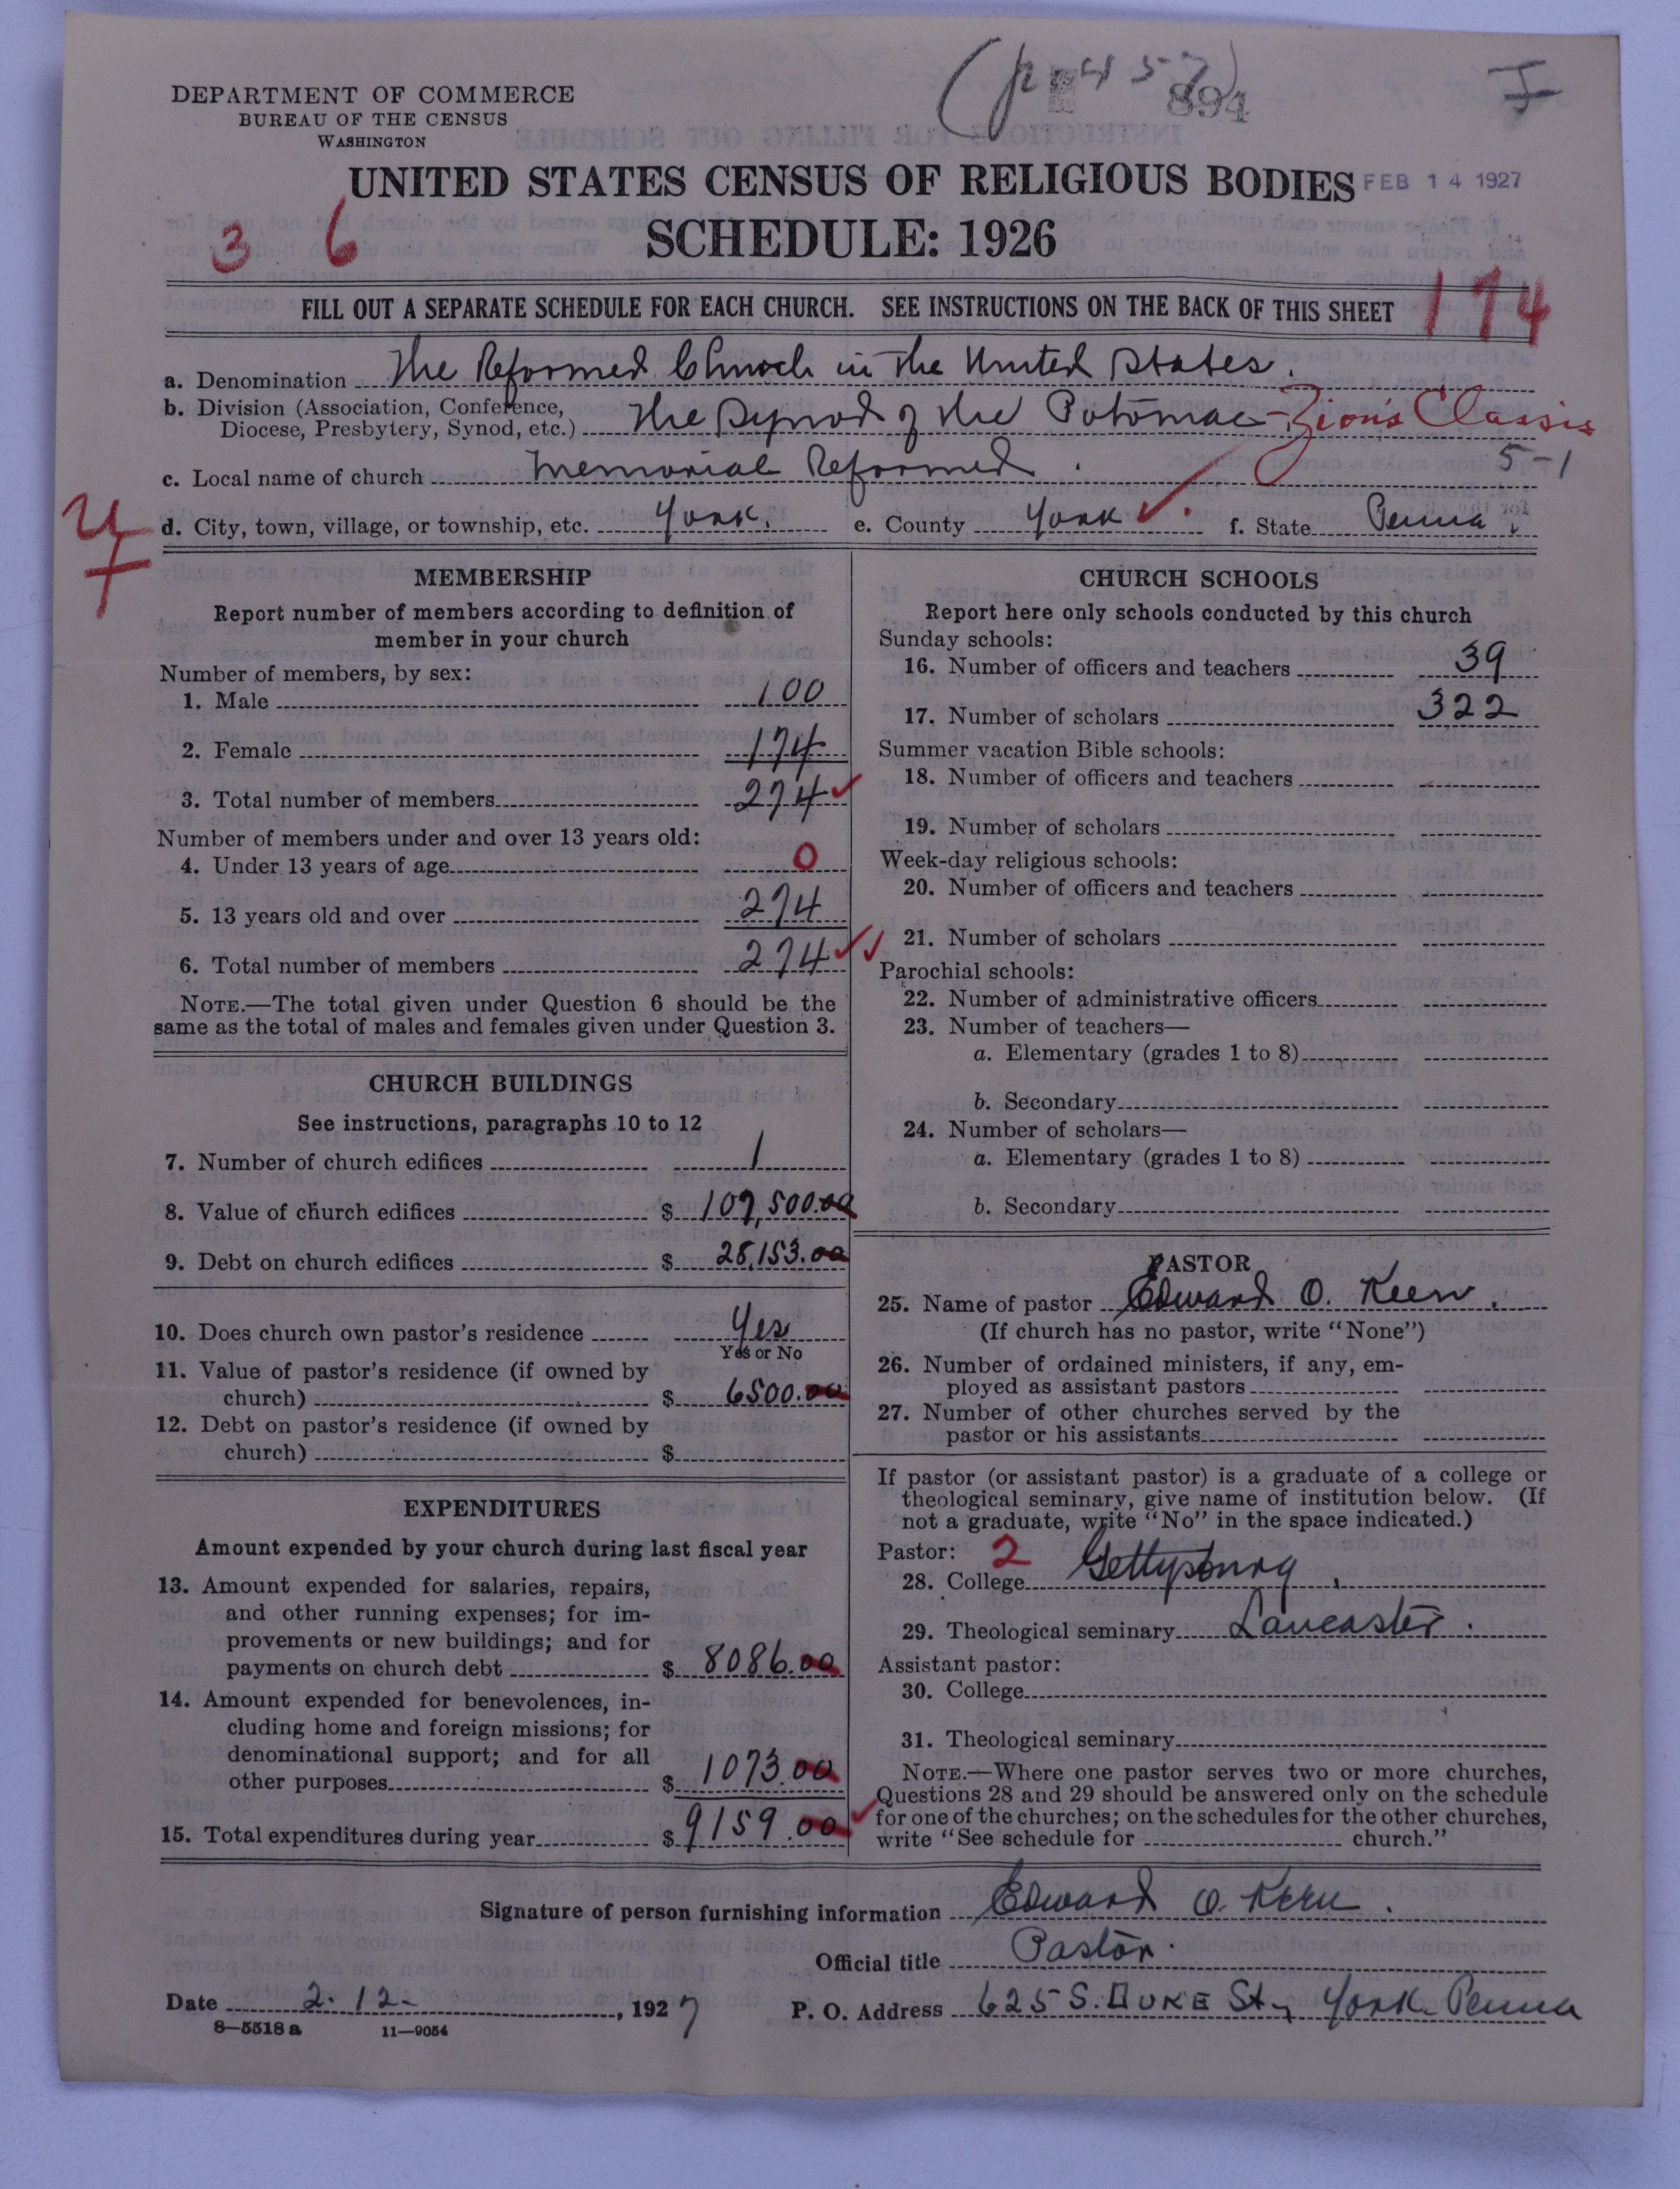 DEPARTMENT OF COMMERCE
BUREAU OF THE CENSUS
WASHINGTON
894
UNITED STATES CENSUS OF RELIGIOUS BODIES FEB 14 1927
3 6
SCHEDULE: 1926
FILL OUT A SEPARATE SCHEDULE FOR EACH CHURCH. SEE INSTRUCTIONS ON THE BACK OF THIS SHEET 174
a. Denomination The Reformed Church in the United States.
b. Division (Association, Conference,
Diocese, Presbytery, Synod, etc.) The Synod of the Potomac - Zion's Classis
c. Local name of church Memorial Reformed. 5-1
d. City, town, village, or township, etc. York. e. County York ✓ f. State Penna.
MEMBERSHIP
Report number of members according to definition of
member in your church
Number of members, by sex:
1. Male 100
2. Female 174
3. Total number of members 274 ✓
Number of members under and over 13 years old:
4. Under 13 years of age 0
5. 13 years old and over 274
6. Total number of members 274 ✓✓
NOTE.—The total given under Question 6 should be the
same as the total of males and females given under Question 3.
CHURCH BUILDINGS
See instructions, paragraphs 10 to 12
7. Number of church edifices 1
8. Value of church edifices $ 107,500.00
9. Debt on church edifices $ 28,153.00
10. Does church own pastor's residence Yes
Yes or No
11. Value of pastor's residence (if owned by
church) $ 6500.00
12. Debt on pastor's residence (if owned by
church) $
EXPENDITURES
Amount expended by your church during last fiscal year
13. Amount expended for salaries, repairs,
and other running expenses; for im-
provements or new buildings; and for
payments on church debt $ 8086.00
14. Amount expended for benevolences, in-
cluding home and foreign missions; for
denominational support; and for all
other purposes $ 1073.00
15. Total expenditures during year $ 9159.00 ✓
CHURCH SCHOOLS
Report here only schools conducted by this church
Sunday schools:
16. Number of officers and teachers 39
17. Number of scholars 322
Summer vacation Bible schools:
18. Number of officers and teachers
19. Number of scholars
Week-day religious schools:
20. Number of officers and teachers
21. Number of scholars
Parochial schools:
22. Number of administrative officers
23. Number of teachers—
a. Elementary (grades 1 to 8)
b. Secondary
24. Number of scholars—
a. Elementary (grades 1 to 8)
b. Secondary
PASTOR
25. Name of pastor Edward O. Keen.
(If church has no pastor, write "None")
26. Number of ordained ministers, if any, em-
ployed as assistant pastors
27. Number of other churches served by the
pastor or his assistants
If pastor (or assistant pastor) is a graduate of a college or
theological seminary, give name of institution below. (If
not a graduate, write "No" in the space indicated.)
Pastor: 2
28. College Gettysburg.
29. Theological seminary Lancaster.
Assistant pastor:
30. College
31. Theological seminary
NOTE.—Where one pastor serves two or more churches,
Questions 28 and 29 should be answered only on the schedule
for one of the churches; on the schedules for the other churches,
write "See schedule for church."
Signature of person furnishing information Edward O. Keen.
Official title Pastor.
Date 2-12-, 1927 P. O. Address 625 S. DUKE St., York Penna
8—5518 a 11—9054